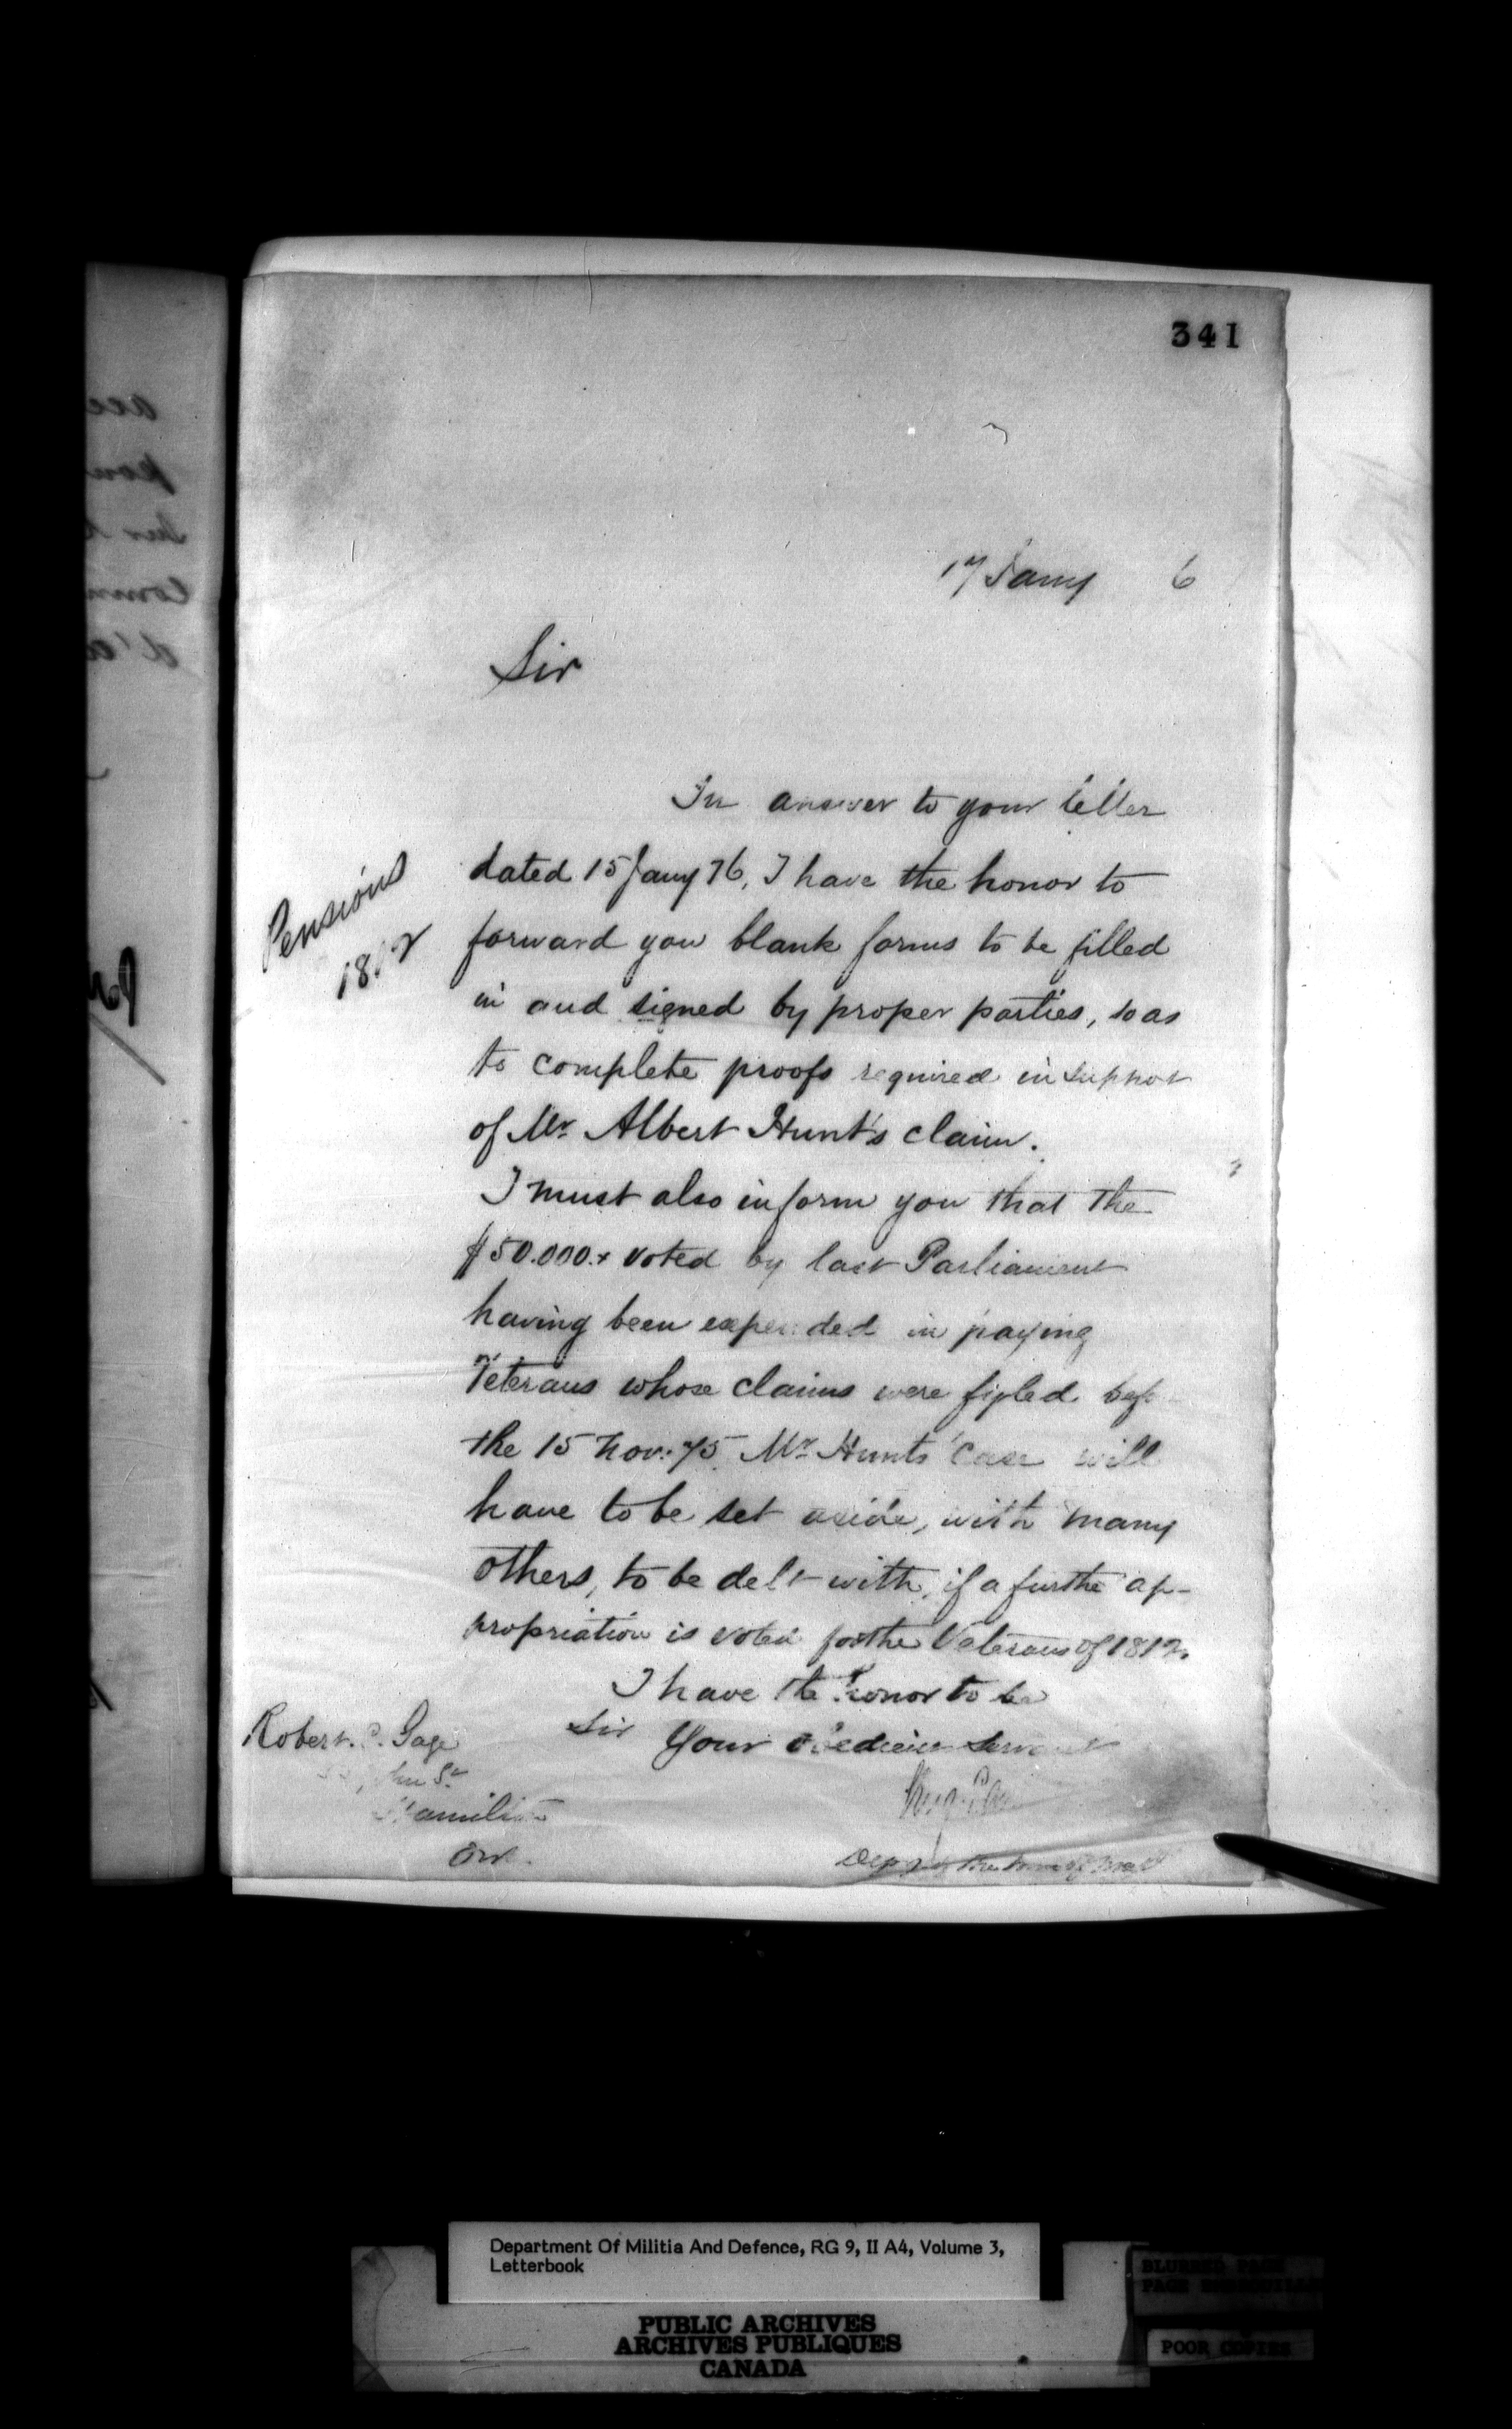 341
17 Jany 6
Sir
In answer to your letter
dated 15 Jany 76, I have the honor to
forward you blank forms to be filled
in and signed by proper parties, so as
to complete proofs required in suppor
of Mr. Albert Hunt's claim.
I must also inform you that the
$50.000.x voted by last Parliament
having been expended in paying
Veterans whose claims were fyled bef
the 15 Nov: 75 Mr. Hunts' case will
have to be set aside, with many
others, to be delt with, if a furthe ap-
propriation is voted for the Veterans of 1812.
I have the honor to be
Sir Your obedient Servant
Pensions
1812
Robert. C. Gage
John St
Hamilton
Ont.
Depy of the Min of Mil
acc
pou
sur
comm
d'a
Department Of Militia And Defence, RG 9, II A4, Volume 3,
Letterbook
PUBLIC ARCHIVES
ARCHIVES PUBLIQUES
CANADA
BLURRED PAGE
PAGE
POOR COPIES